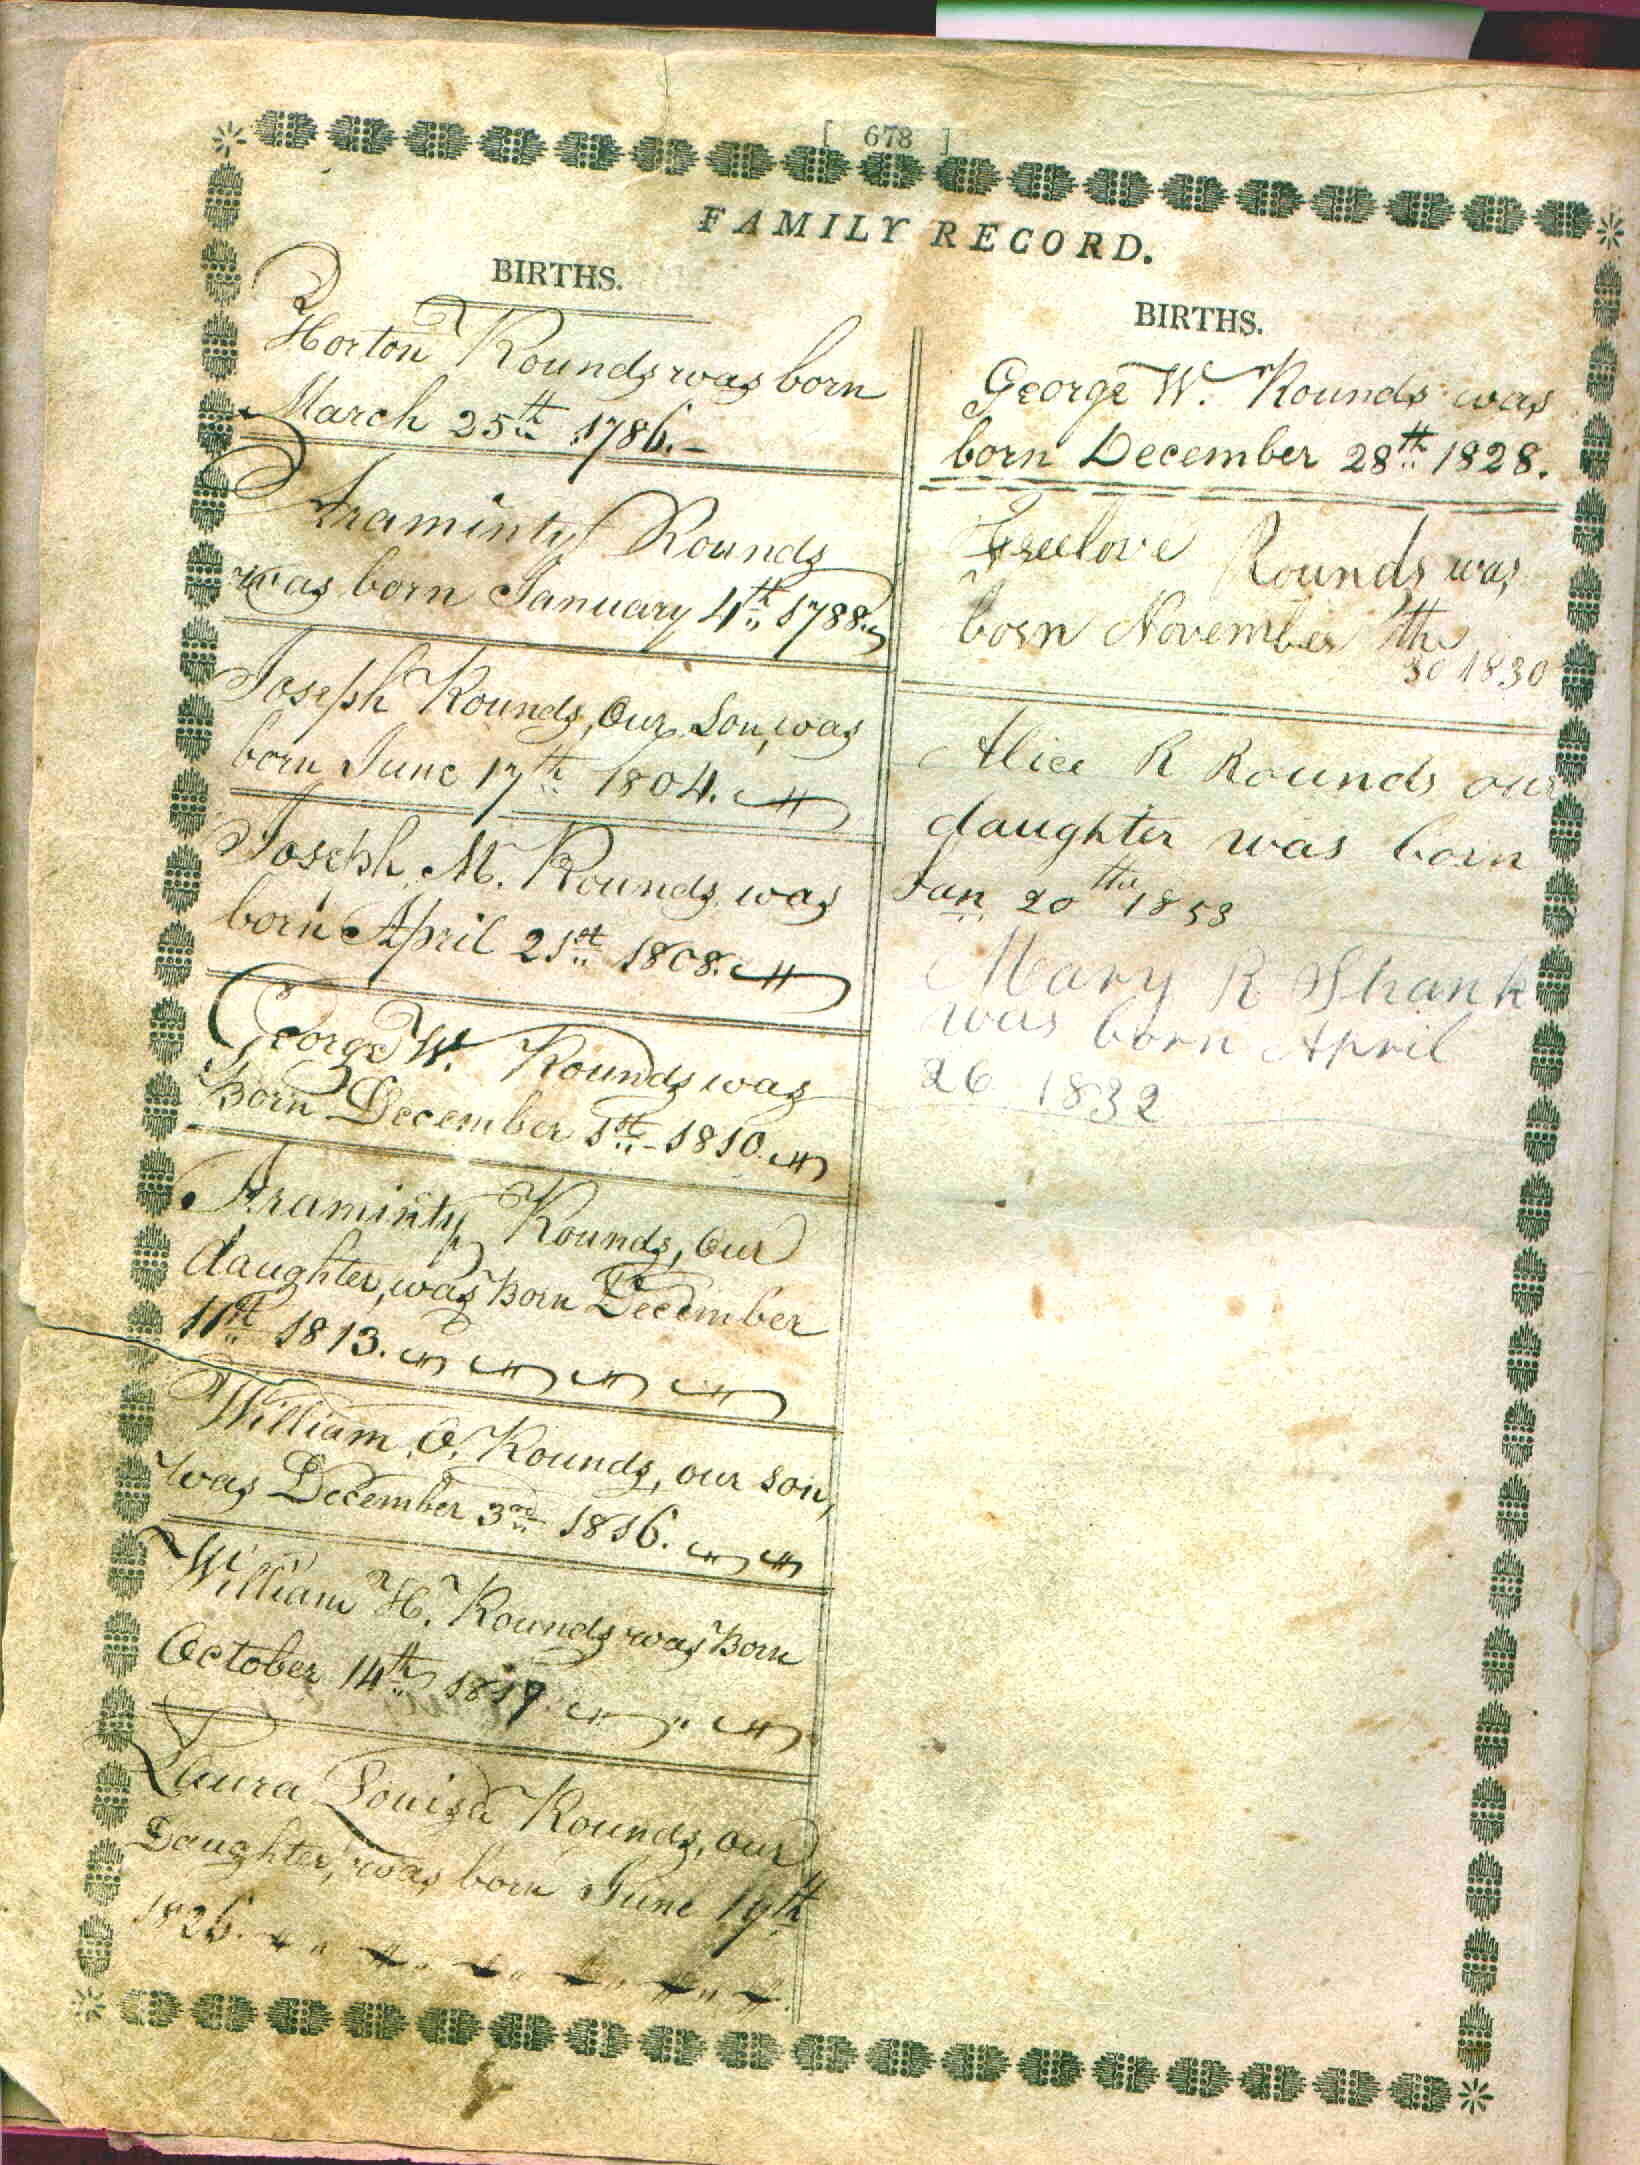 [ 678 ]
FAMILY RECORD.
BIRTHS.
Horton Rounds was born
March 25th 1786.
Araminty Rounds
was born January 4th 1788.
Joseph Rounds, our Son, was
born June 17th 1804.
Joseph M. Rounds was
born April 21st 1808.
George W. Rounds was
Born December 1st 1810.
Araminty Rounds, Our
daughter, was Born December
11th 1813.
William O. Rounds, our son,
was December 3rd 1816.
William H. Rounds was Born
October 14th 1819.
Laura Louisa Rounds, our
Daughter, was born June 19th
1826.
BIRTHS.
George W. Rounds was
born December 28th 1828.
Freelove Rounds was
born November the
30 1830
Alice R Rounds our
daughter was born
Jan 20th 1853
Mary R Shank
was born April
26 1832